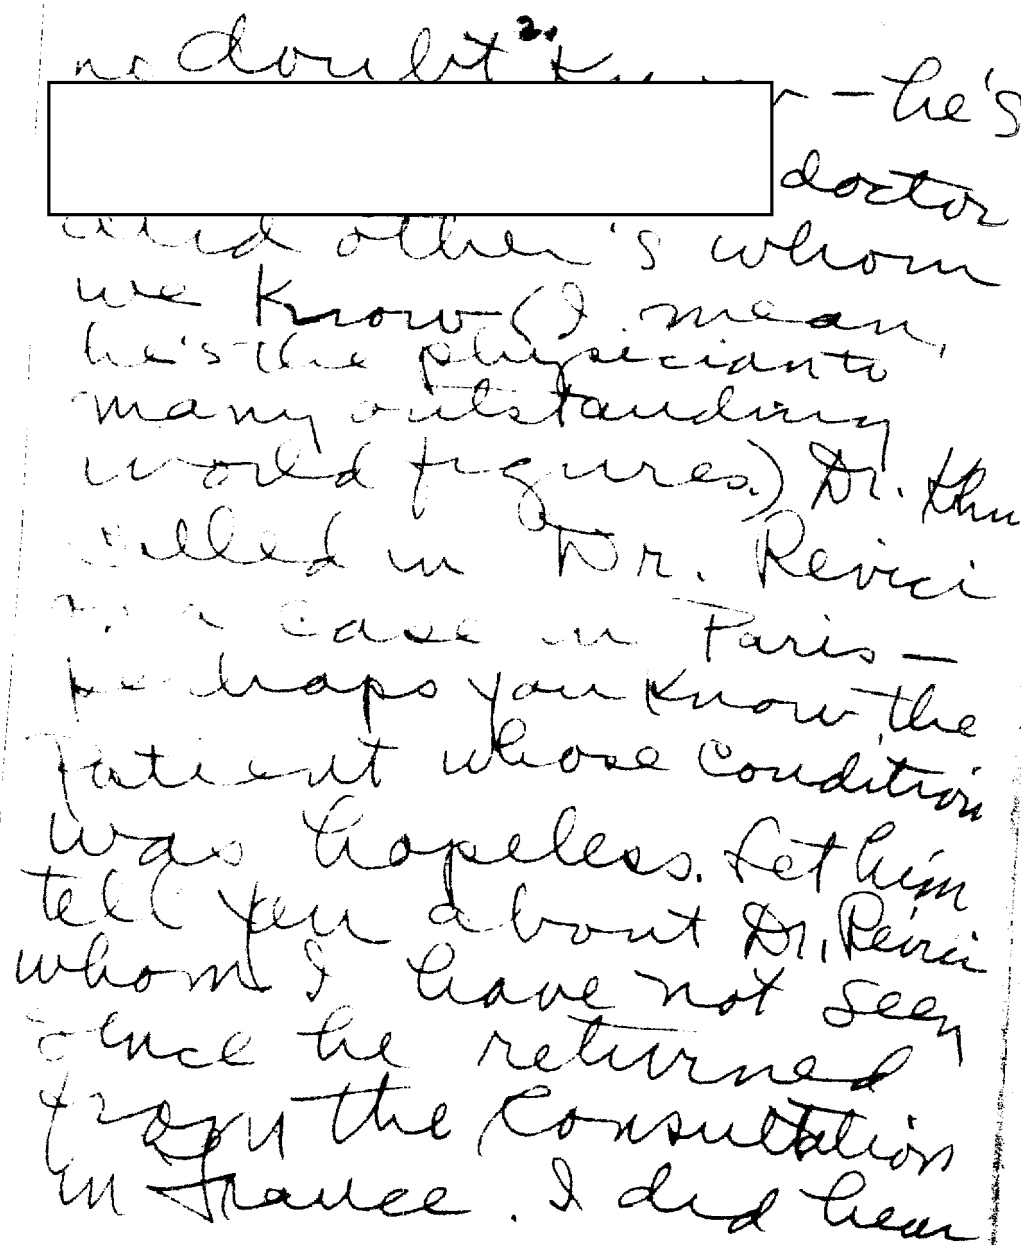 2.
no doubt
— he's
doctor
and other's whom
we know (I mean,
he's the physician to
many outstanding
world figures.) Dr.
called in Dr. Revici
in a case in Paris —
perhaps you know the
patient whose condition
was hopeless. Let him
tell you about Dr. Revici
whom I have not seen
since he returned
from the consultation
in France. I did hear